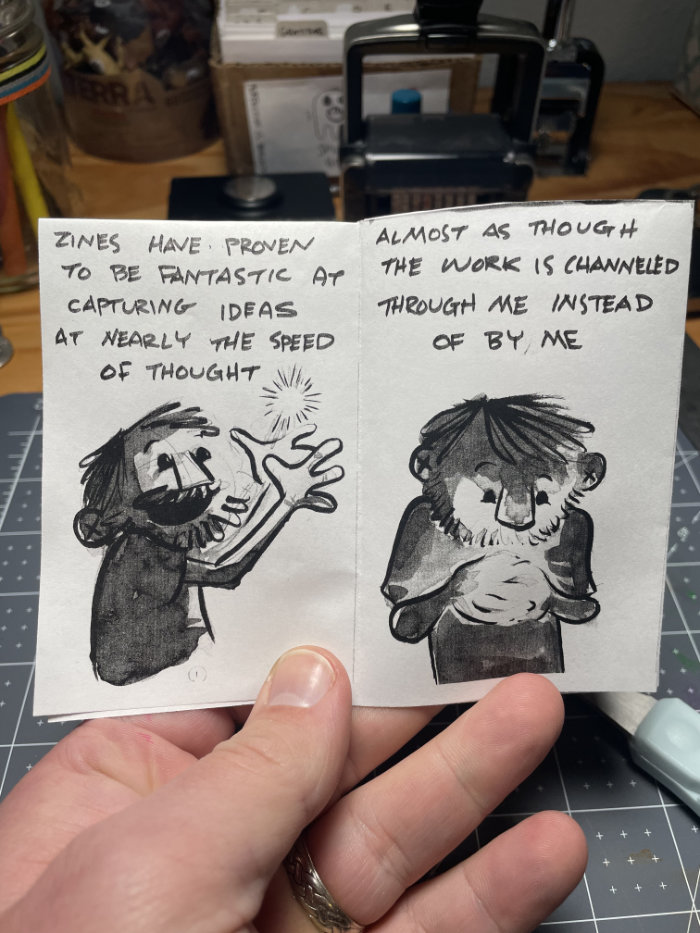 ZINES HAVE PROVEN
TO BE FANTASTIC AT
CAPTURING IDEAS
AT NEARLY THE SPEED
OF THOUGHT
ALMOST AS THOUGH
THE WORK IS CHANNELED
THROUGH ME INSTEAD
OF BY ME
TERRA